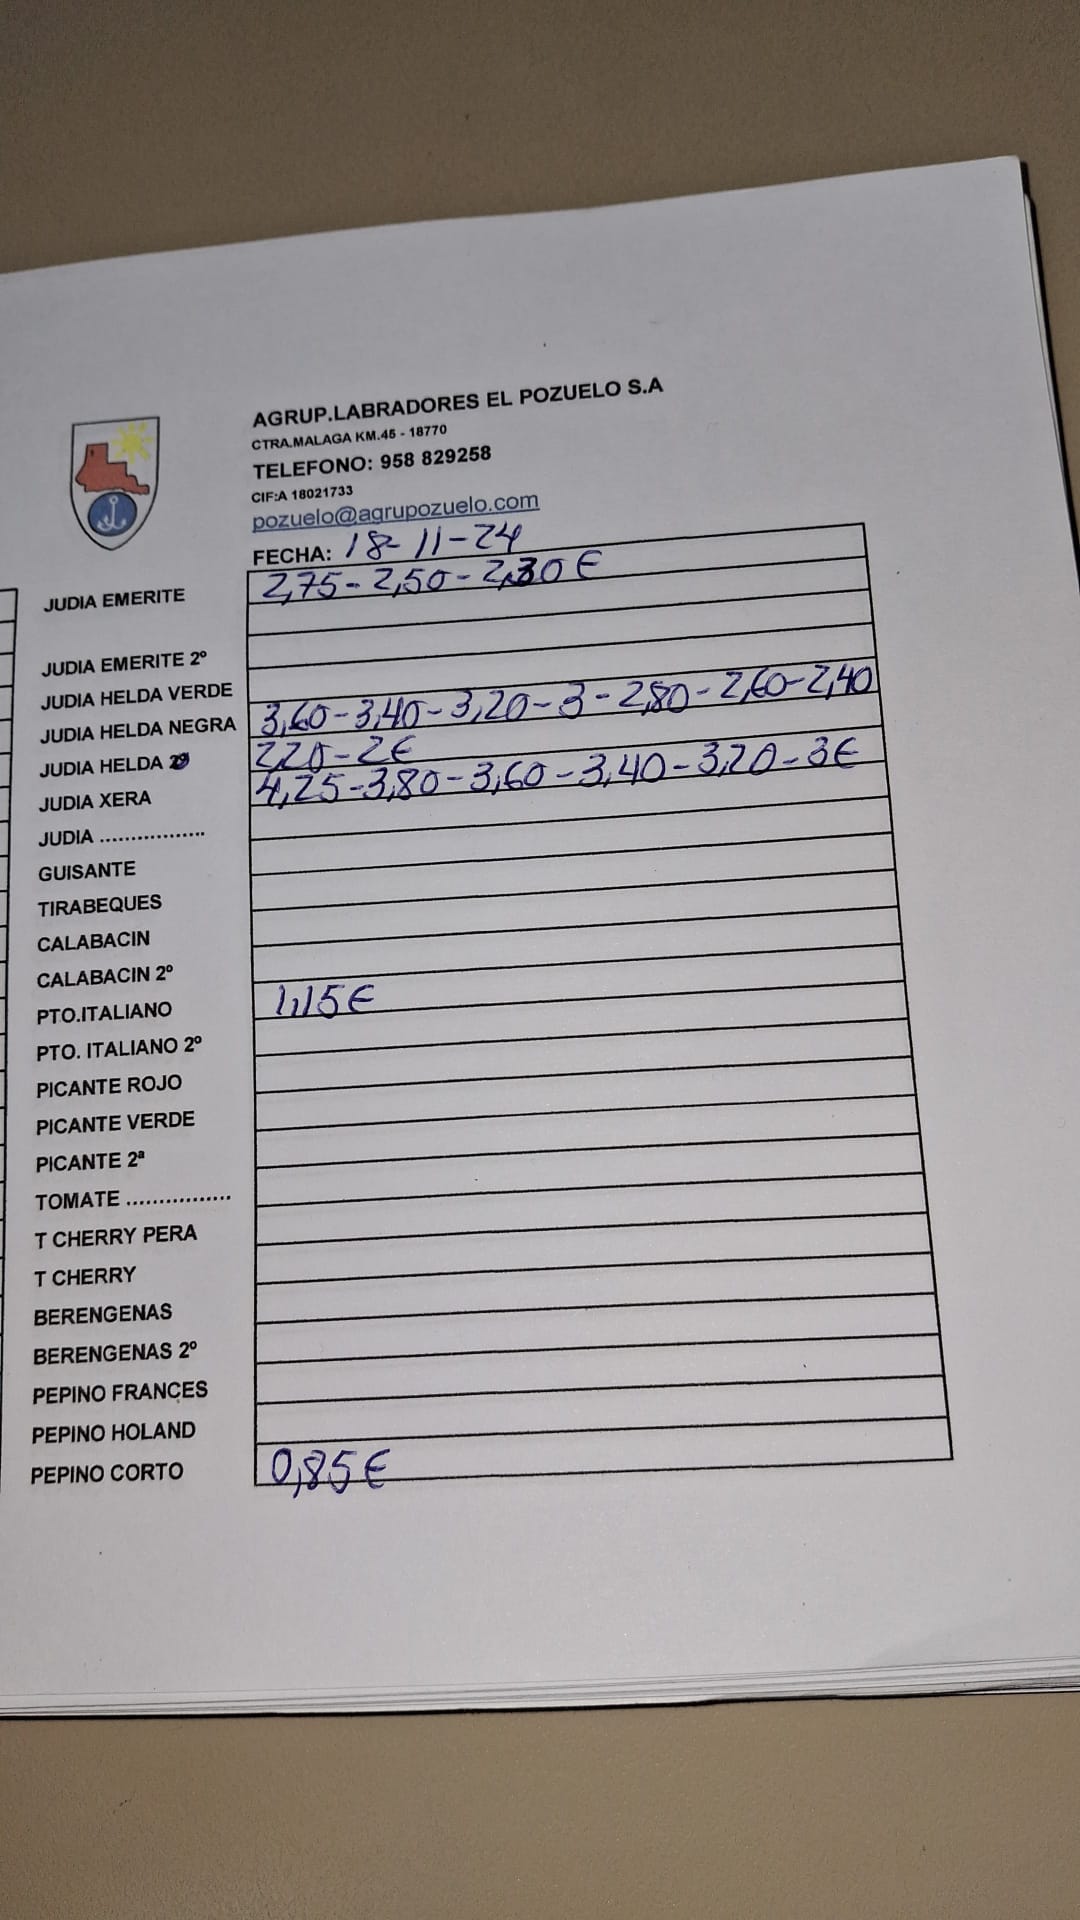 AGRUP.LABRADORES EL POZUELO S.A
CTRA.MALAGA KM.45 - 18770
TELEFONO: 958 829258
CIF:A 18021733
pozuelo@agrupozuelo.com
FECHA: 18-11-24
JUDIA EMERITE 2,75-2,50-2,30€
JUDIA EMERITE 2º
JUDIA HELDA VERDE
JUDIA HELDA NEGRA 3,60-3,40-3,20-3-2,80-2,60-2,40
JUDIA HELDA 2,20-2€
JUDIA XERA 4,25-3,80-3,60-3,40-3,20-3€
JUDIA .................
GUISANTE
TIRABEQUES
CALABACIN
CALABACIN 2º
PTO.ITALIANO 1,15€
PTO. ITALIANO 2º
PICANTE ROJO
PICANTE VERDE
PICANTE 2ª
TOMATE ................
T CHERRY PERA
T CHERRY
BERENGENAS
BERENGENAS 2º
PEPINO FRANCES
PEPINO HOLAND
PEPINO CORTO 0,85€